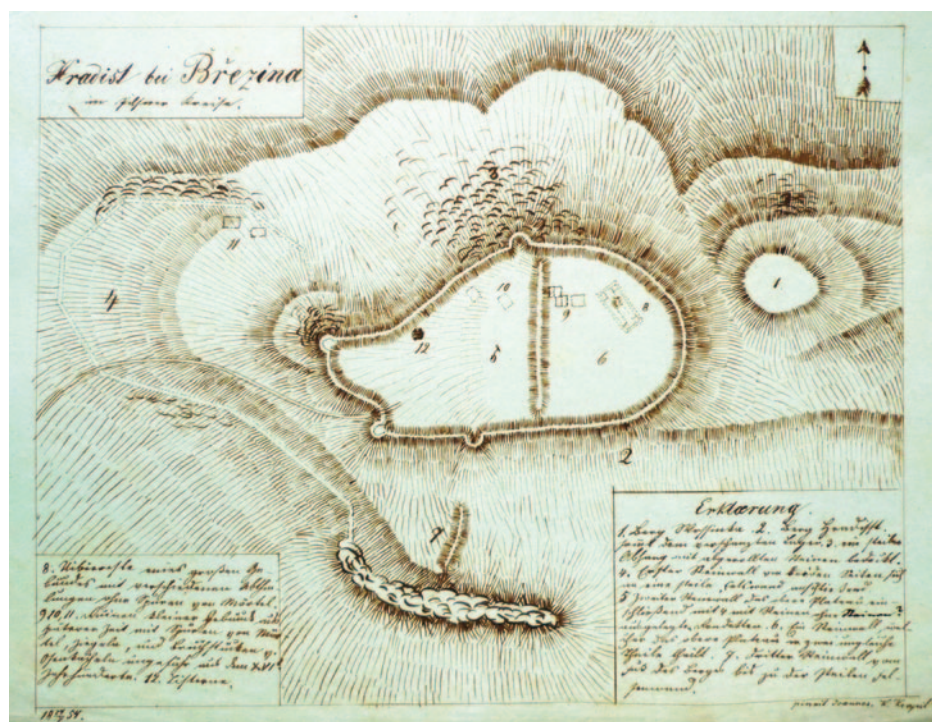 Hradist bei Březina
im Pilsner Kreise.
11
3
3
1
4
10
9
8
12
5
6
3
2
7
8. Überreste eines großen Ge
bäudes mit verschiedenen Abthei
lungen ohne Spuren von Mörtel.
9, 10, 11. Ruinen kleiner Gebäude aus
späterer Zeit mit Spuren von Mör
tel, Ziegeln, und Bruchstücken v.
Ofenkacheln ungefähr aus dem XVI
Jahrhunderte. 12. Cisterne.
Erklaerung.
1. Berg 2. Berg Hradischt
mit dem verschanzten Lager. 3. ein steiler
Abhang mit abgerollten Steinen bedeckt.
4. Erster Steinwall von beiden Seiten sich
an eine steile
5 Zweiter Steinwall das obere Plateau ein
schließend mit mit Steinen
6. Ein Steinwall wel
cher das obere Plateau in zwei ungleiche
Theile theilt. 7. Dritter Steinwall vom
Fuß des Berges bis zu der steilen Fel
senwand.